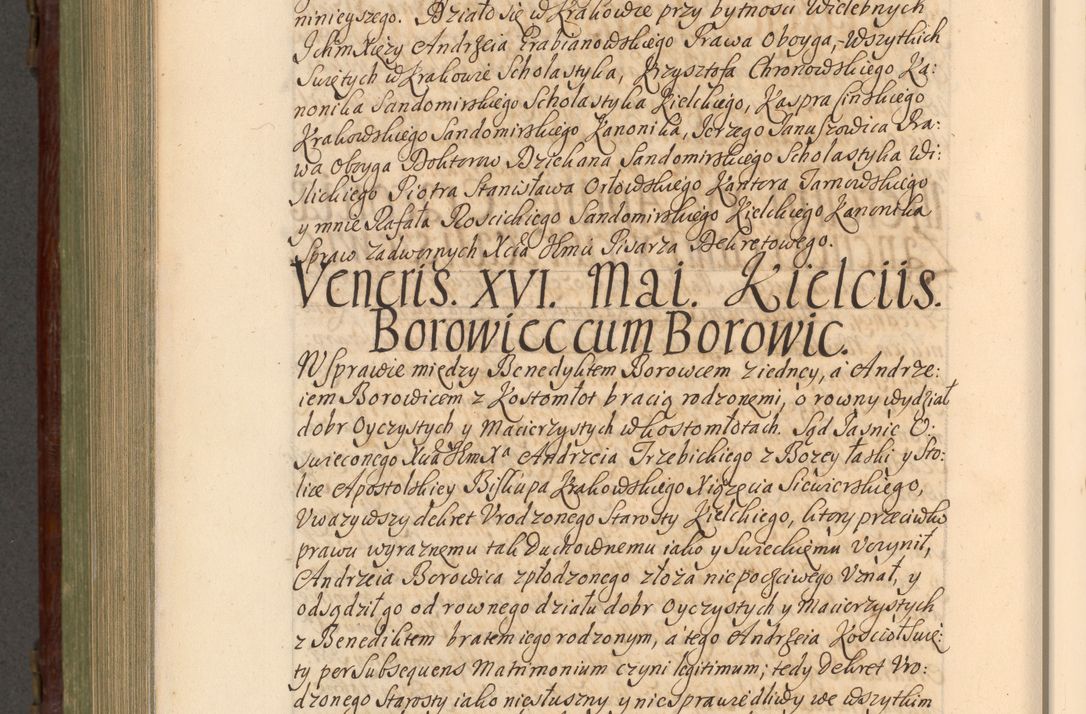 ninieyszego. Działo się w Krakowie przy bytnosci Wielebnych
Ichm Xięży Andrzeia Grabianowskiego Prawa Oboyga, Wszytkich
Swiętych w Krakowie Scholastyka, Krzysztofa Chronowskiego Ka:
nonika Sandomirskiego Scholastyka Kielckiego, Kaspra Cinskiego
Krakowskiego Sandomirskiego Kanonika, Jerzego Januszowica Pra:
wa Oboyga Doktorow Dziekana Sandomirskiego Scholastyka Wi:
slickiego Piotra Stanisława Orłowskiego Kantora Tarnowskiego
y mnie Rafała Roscickiego Sandomirskiego Kielckiego Kanonika
Spraw zadwornych Xcia Jmci Pisarza Dekretowego.
Veneris. XVI. Mai. Kielciis.
Borowiec cum Borowic.
W Sprawie między Benedyktem Borowcem z iedney, a Andrze:
iem Borowicem z Kostomłot bracią rodzonemi, o rowny wydział
dobr Oyczystych y Macierzystych w Kostomłotach. Sąd Jasnie O:
swieconego Andrzeia Trzebickiego z Bozey łaski y Sto:
lice Apostolskiey Biskupa Krakowskiego Xiązęcia Siewierskiego,
Vwazywszy dekret Vrodzonego Starosty Kielckiego, ktory przeciwko
prawu wyraznemu tak Duchownemu iako y Swieckiemu Vczynił,
Andrzeia Borowica zpłodzonego złoża niepocsciwego Vznał, y
odsądził go od rownego działu dobr Oyczystych y Macierzystych
z Benediktem bratem iego rodzonym, a tego Andrzeia Kosciół Swię:
ty per Subsequens Matrimonium czyni legitimum; tedy Dekret Vro:
dzonego Starosty iako niesłuszny y niesprawiedliwy we wszytkim